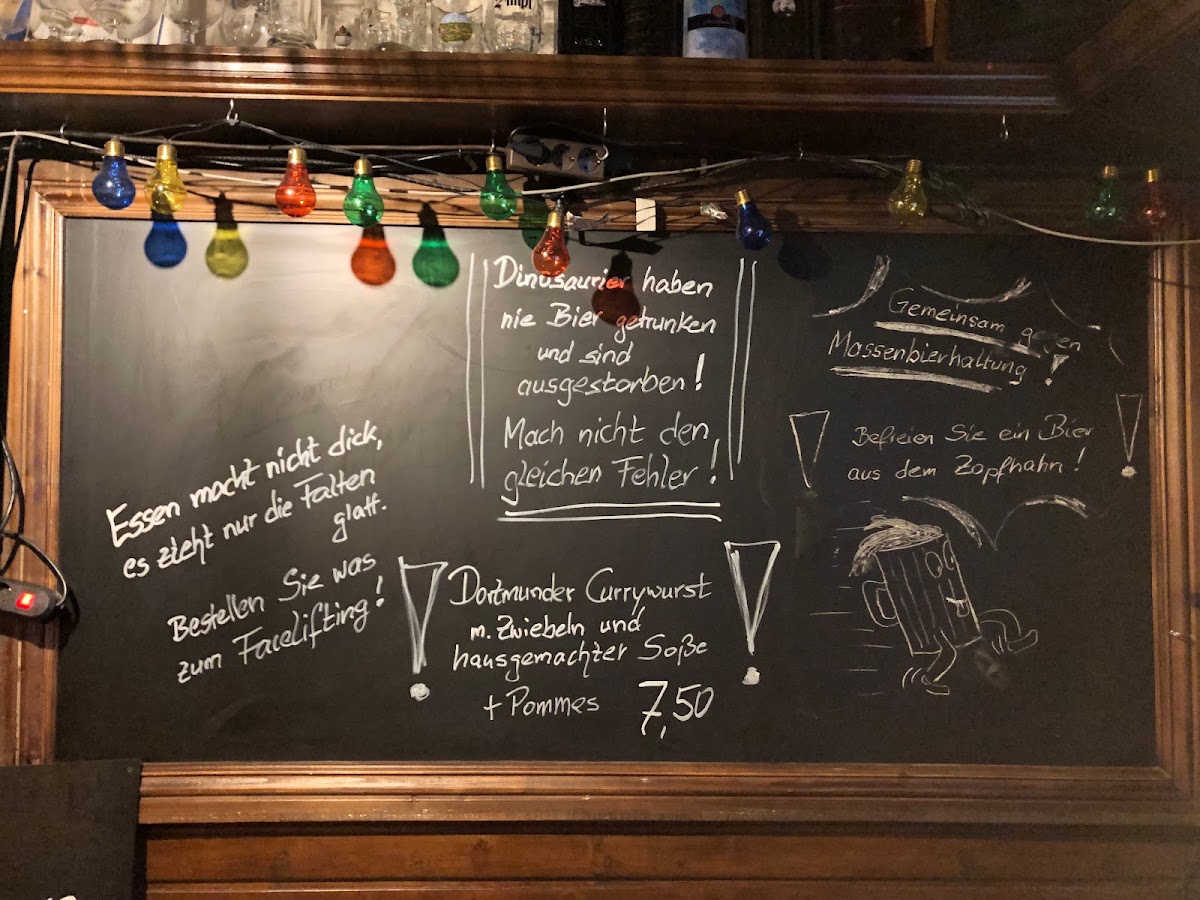 Essen macht nicht dick,
es zieht nur die Falten
glatt.
Bestellen Sie was
zum Facelifting!
Dinosaurier haben
nie Bier getrunken
und sind
ausgestorben!
Mach nicht den
gleichen Fehler!
Dortmunder Currywurst
m. Zwiebeln und
hausgemachter Soße
+ Pommes 7,50
Gemeinsam gegen
Massenbierhaltung!
Befreien Sie ein Bier
aus dem Zapfhahn!